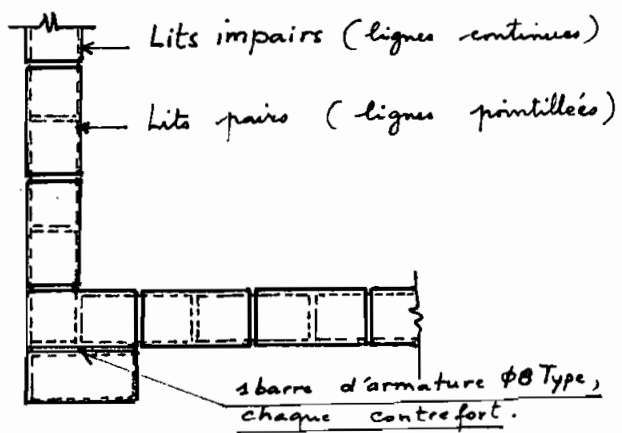 Lits impairs (lignes continues)
Lits pairs (lignes pointillées)
1 barre d'armature Ø8 Type,
chaque contrefort.